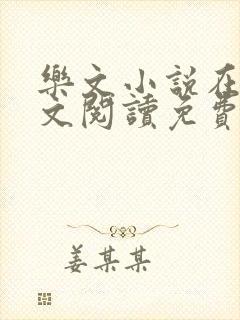 樂文小說在
文閱讀免費
姜某某